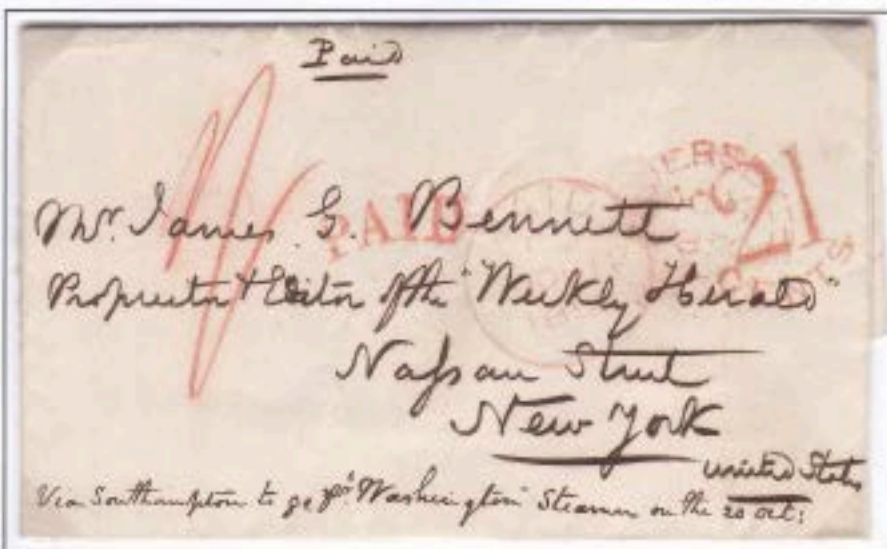 Paid
PAID
21
CENTS
Mr. James G. Bennett
Proprietor & Editor of the "Weekly Herald"
Nassau Street
New York
United States
Via Southampton to go pr "Washington" Steamer on the 20 Oct: